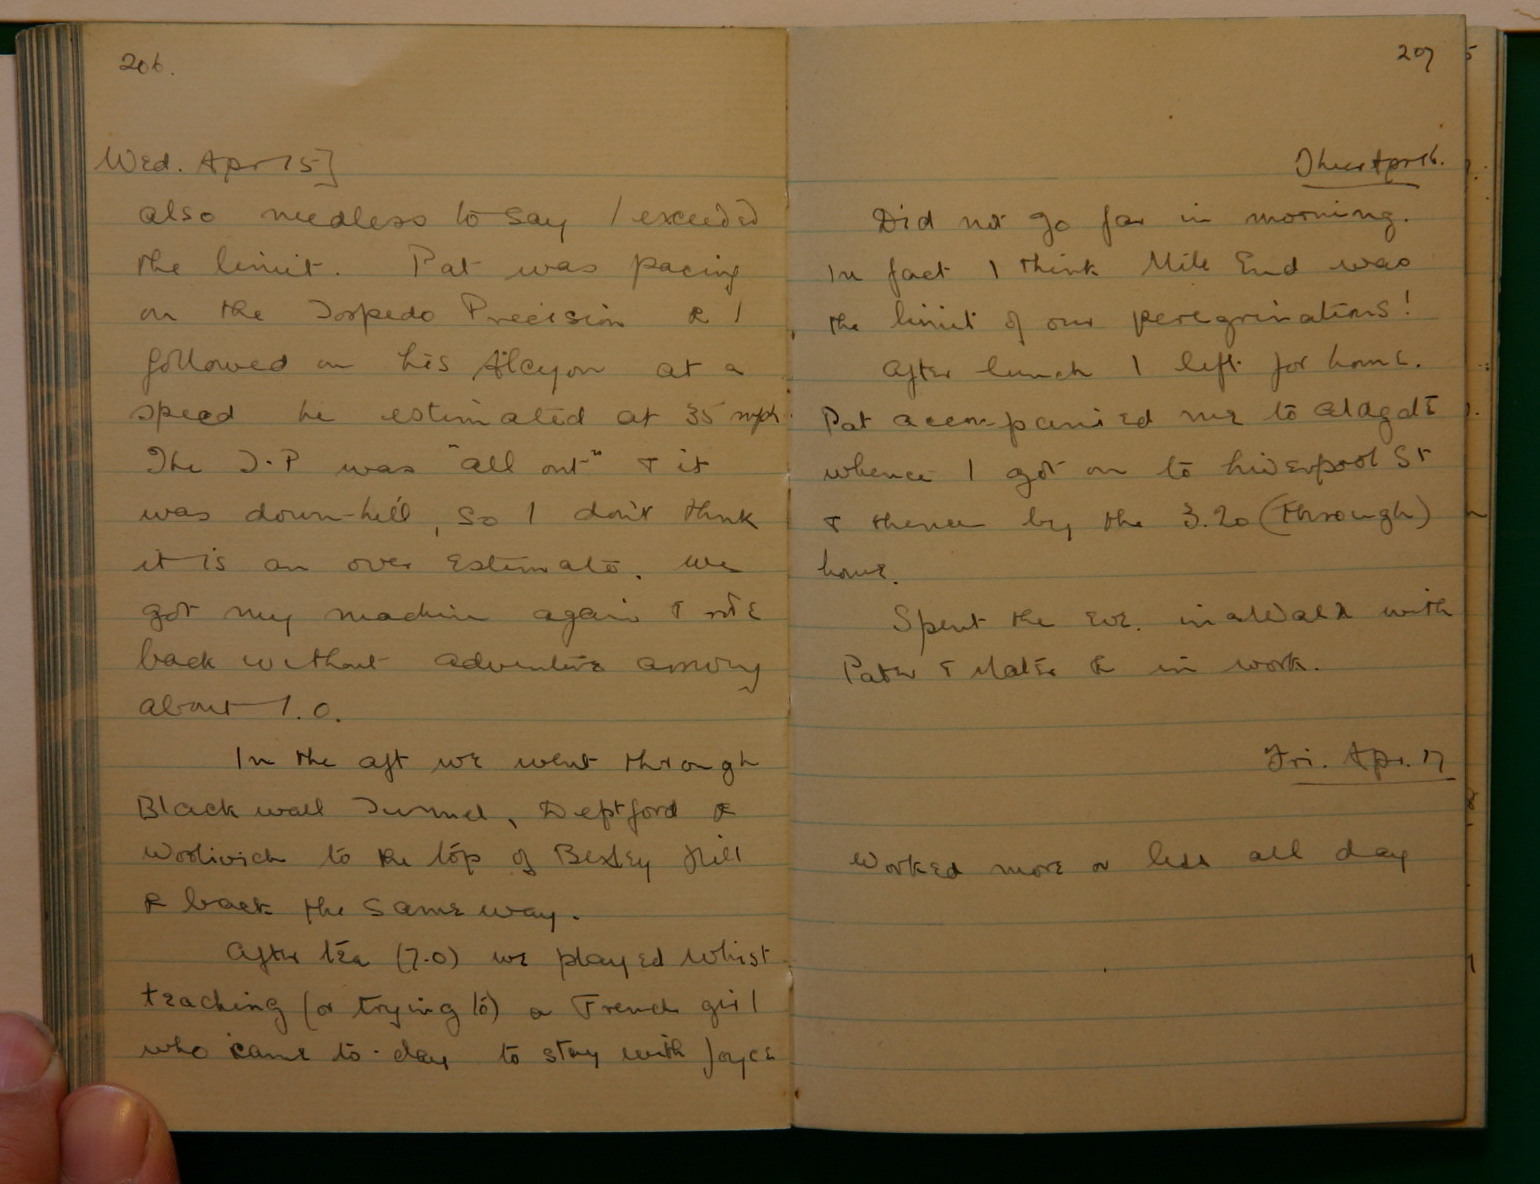 206.
Wed. Apr 15]
also needless to say I exceeded
the limit. Pat was pacing
on the Torpedo Precision & I
followed on his Alcyon at a
speed he estimated at 35 mph.
The T.P was "all out" & it
was down-hill, so I don't think
it is an over estimate. We
got my machine again & rode
back without adventure arriving
about 1.0.
In the aft we went through
Blackwall Tunnel, Deptford &
Woolwich to the top of Bexley Hill
& back the same way.
After tea (7.0) we played whist
teaching (or trying to) a French girl
who came to-day to stay with Joyce
207
Thur Apr 16.
Did not go far in morning.
In fact I think Mile End was
the limit of our peregrinations!
After lunch I left for home.
Pat accompanied me to Aldgate
whence I got on to Liverpool St
& thence by the 3.20 (through)
home.
Spent the eve. in a walk with
Pater & Mater & in work.
Fri. Apr. 17
Worked more or less all day